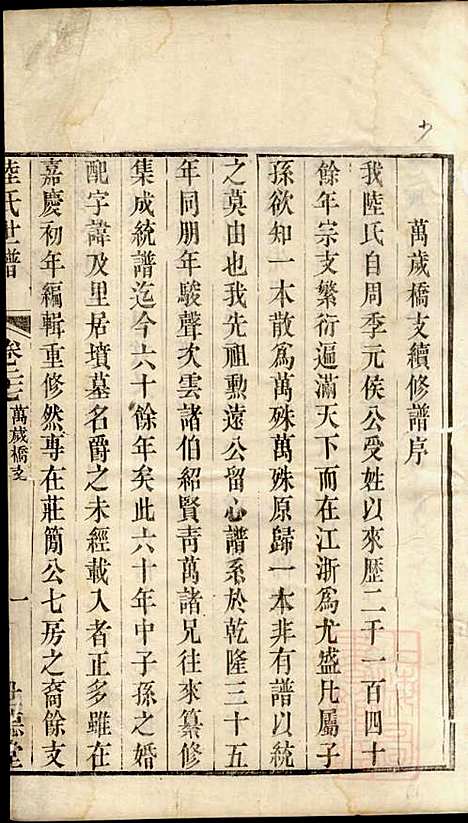 萬歲橋支續修譜序
我陸氏自周季元侯公受姓以來歷二千一百四十
餘年宗支繁衍遍滿天下而在江浙為尤盛凡屬子
孫欲知一本散為萬殊萬殊原歸一本非有譜以統
之莫由也我先祖勲遠公留心譜系於乾隆三十五
年同朋年駿聲次雲諸伯紹賢靑萬諸兄往來纂修
集成統譜迄今六十餘年矣此六十年中子孫之婚
配字諱及里居墳墓名爵之未經載入者正多雖在
嘉慶初年編輯重修然專在莊簡公七房之裔餘支
陸氏世譜
萬歲橋支
一
世德堂